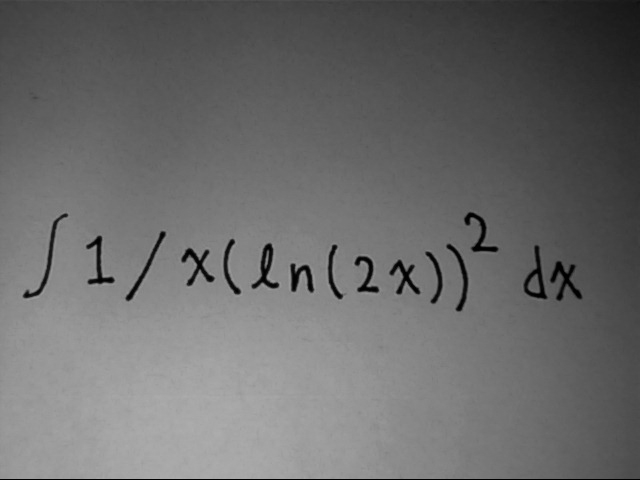 ∫ 1 / x(ln(2x))² dx